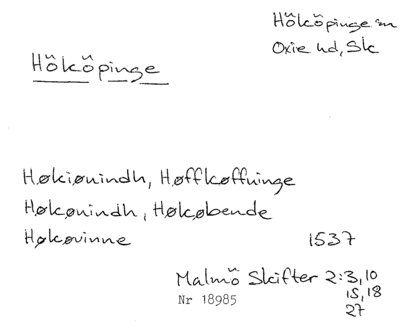 Hökö̆pinge sn
Oxie hd, Sk
Hökö̆pinge
Høkiønindh, Høffkøffuinge
Høkønindh, Høkøbende
Høkøvinne 1537
Malmö Skifter 2:3,10
15,18
27
Nr 18985